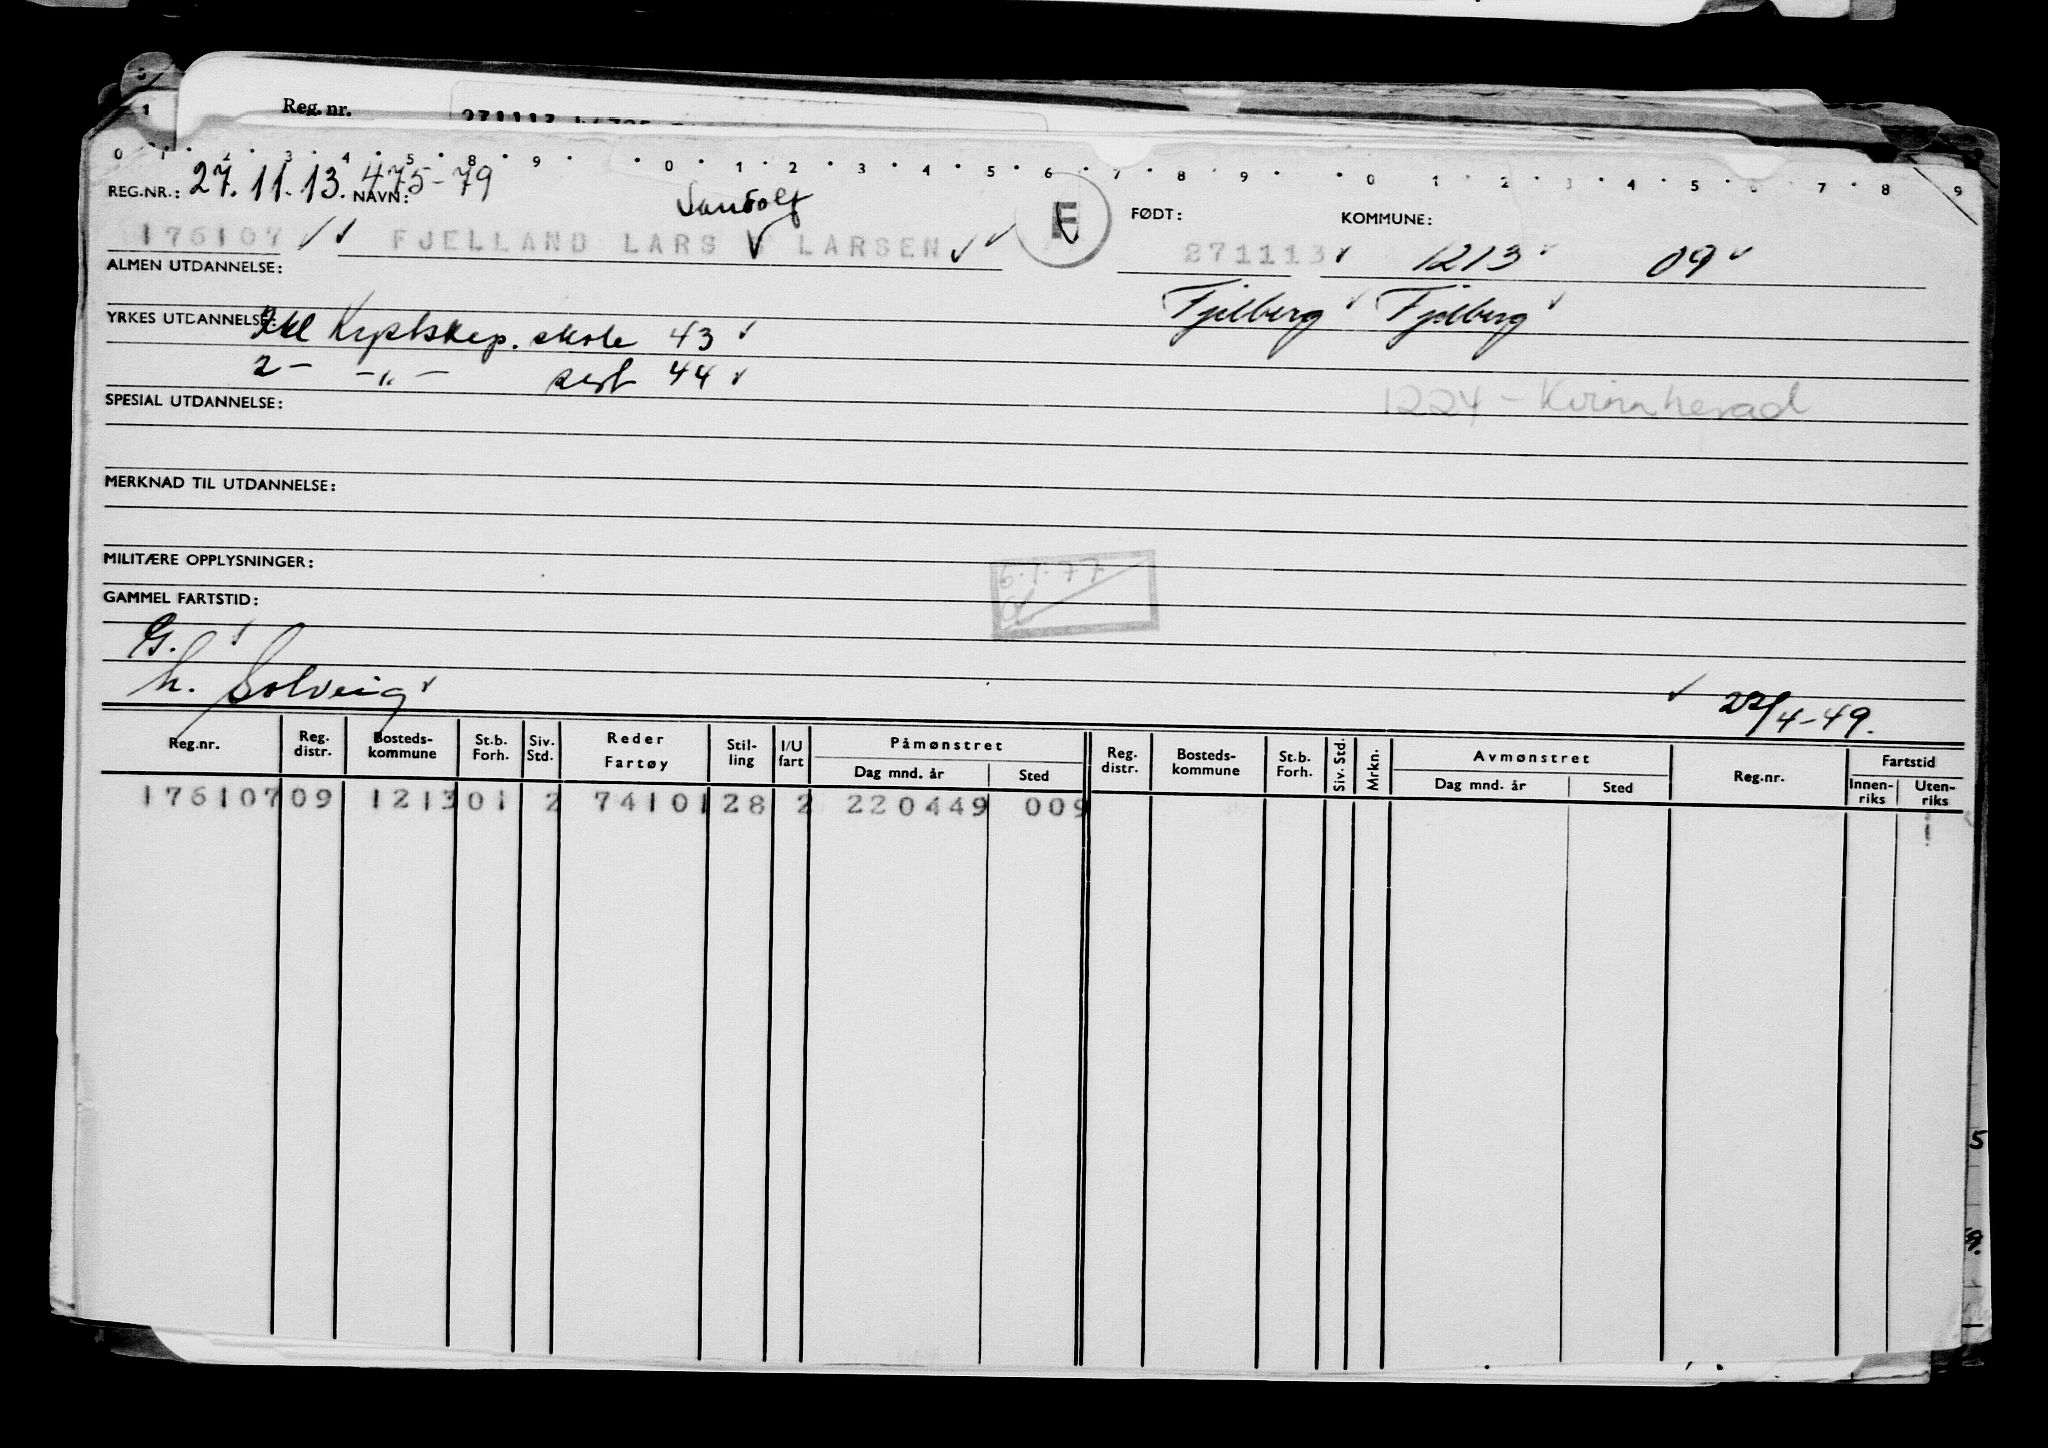 Reg. nr.
0 1 2 3 4 5 8 9 0 1 2 3 4 5 6 7 8 9 0 1 2 3 4 5 6 7 8 9
REG.NR.: 27.11.13. 475-79 NAVN:
FØDT: KOMMUNE:
176107 FJELLAND LARS V LARSEN F 271113 1213 09
ALMEN UTDANNELSE:
Fjelberg Fjelberg
YRKES UTDANNELSE: 2kl Kystskep. skole 43
2 - -"- sert 44
1224 - Kvinnherad
SPESIAL UTDANNELSE:
MERKNAD TIL UTDANNELSE:
MILITÆRE OPPLYSNINGER:
6.1.77
GAMMEL FARTSTID:
G.
h. Solveig
22/4-49.
Reg.nr. Reg. distr. Bosteds-kommune St.b. Forh. Siv. Std. Reder Fartøy Stil-ling I/U fart Påmønstret Dag mnd. år Sted Reg. distr. Bosteds-kommune St.b. Forh. Siv. Std. Mrkn. Avmønstret Dag mnd. år Sted Reg.nr. Fartstid Innen-riks Uten-riks
176107 09 1213 01 2 74101 28 2 220449 009 1